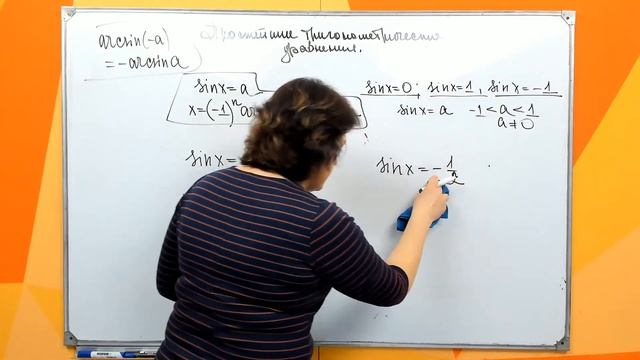 Простейшие тригонометрические
уравнения.
arcsin(-a)
= -arcsin a
sin x = a
x = (-1)ⁿ
sin x = 0; sin x = 1, sin x = -1
sin x = a -1 < a < 1
a ≠ 0
sin x =
sin x = - 1/2